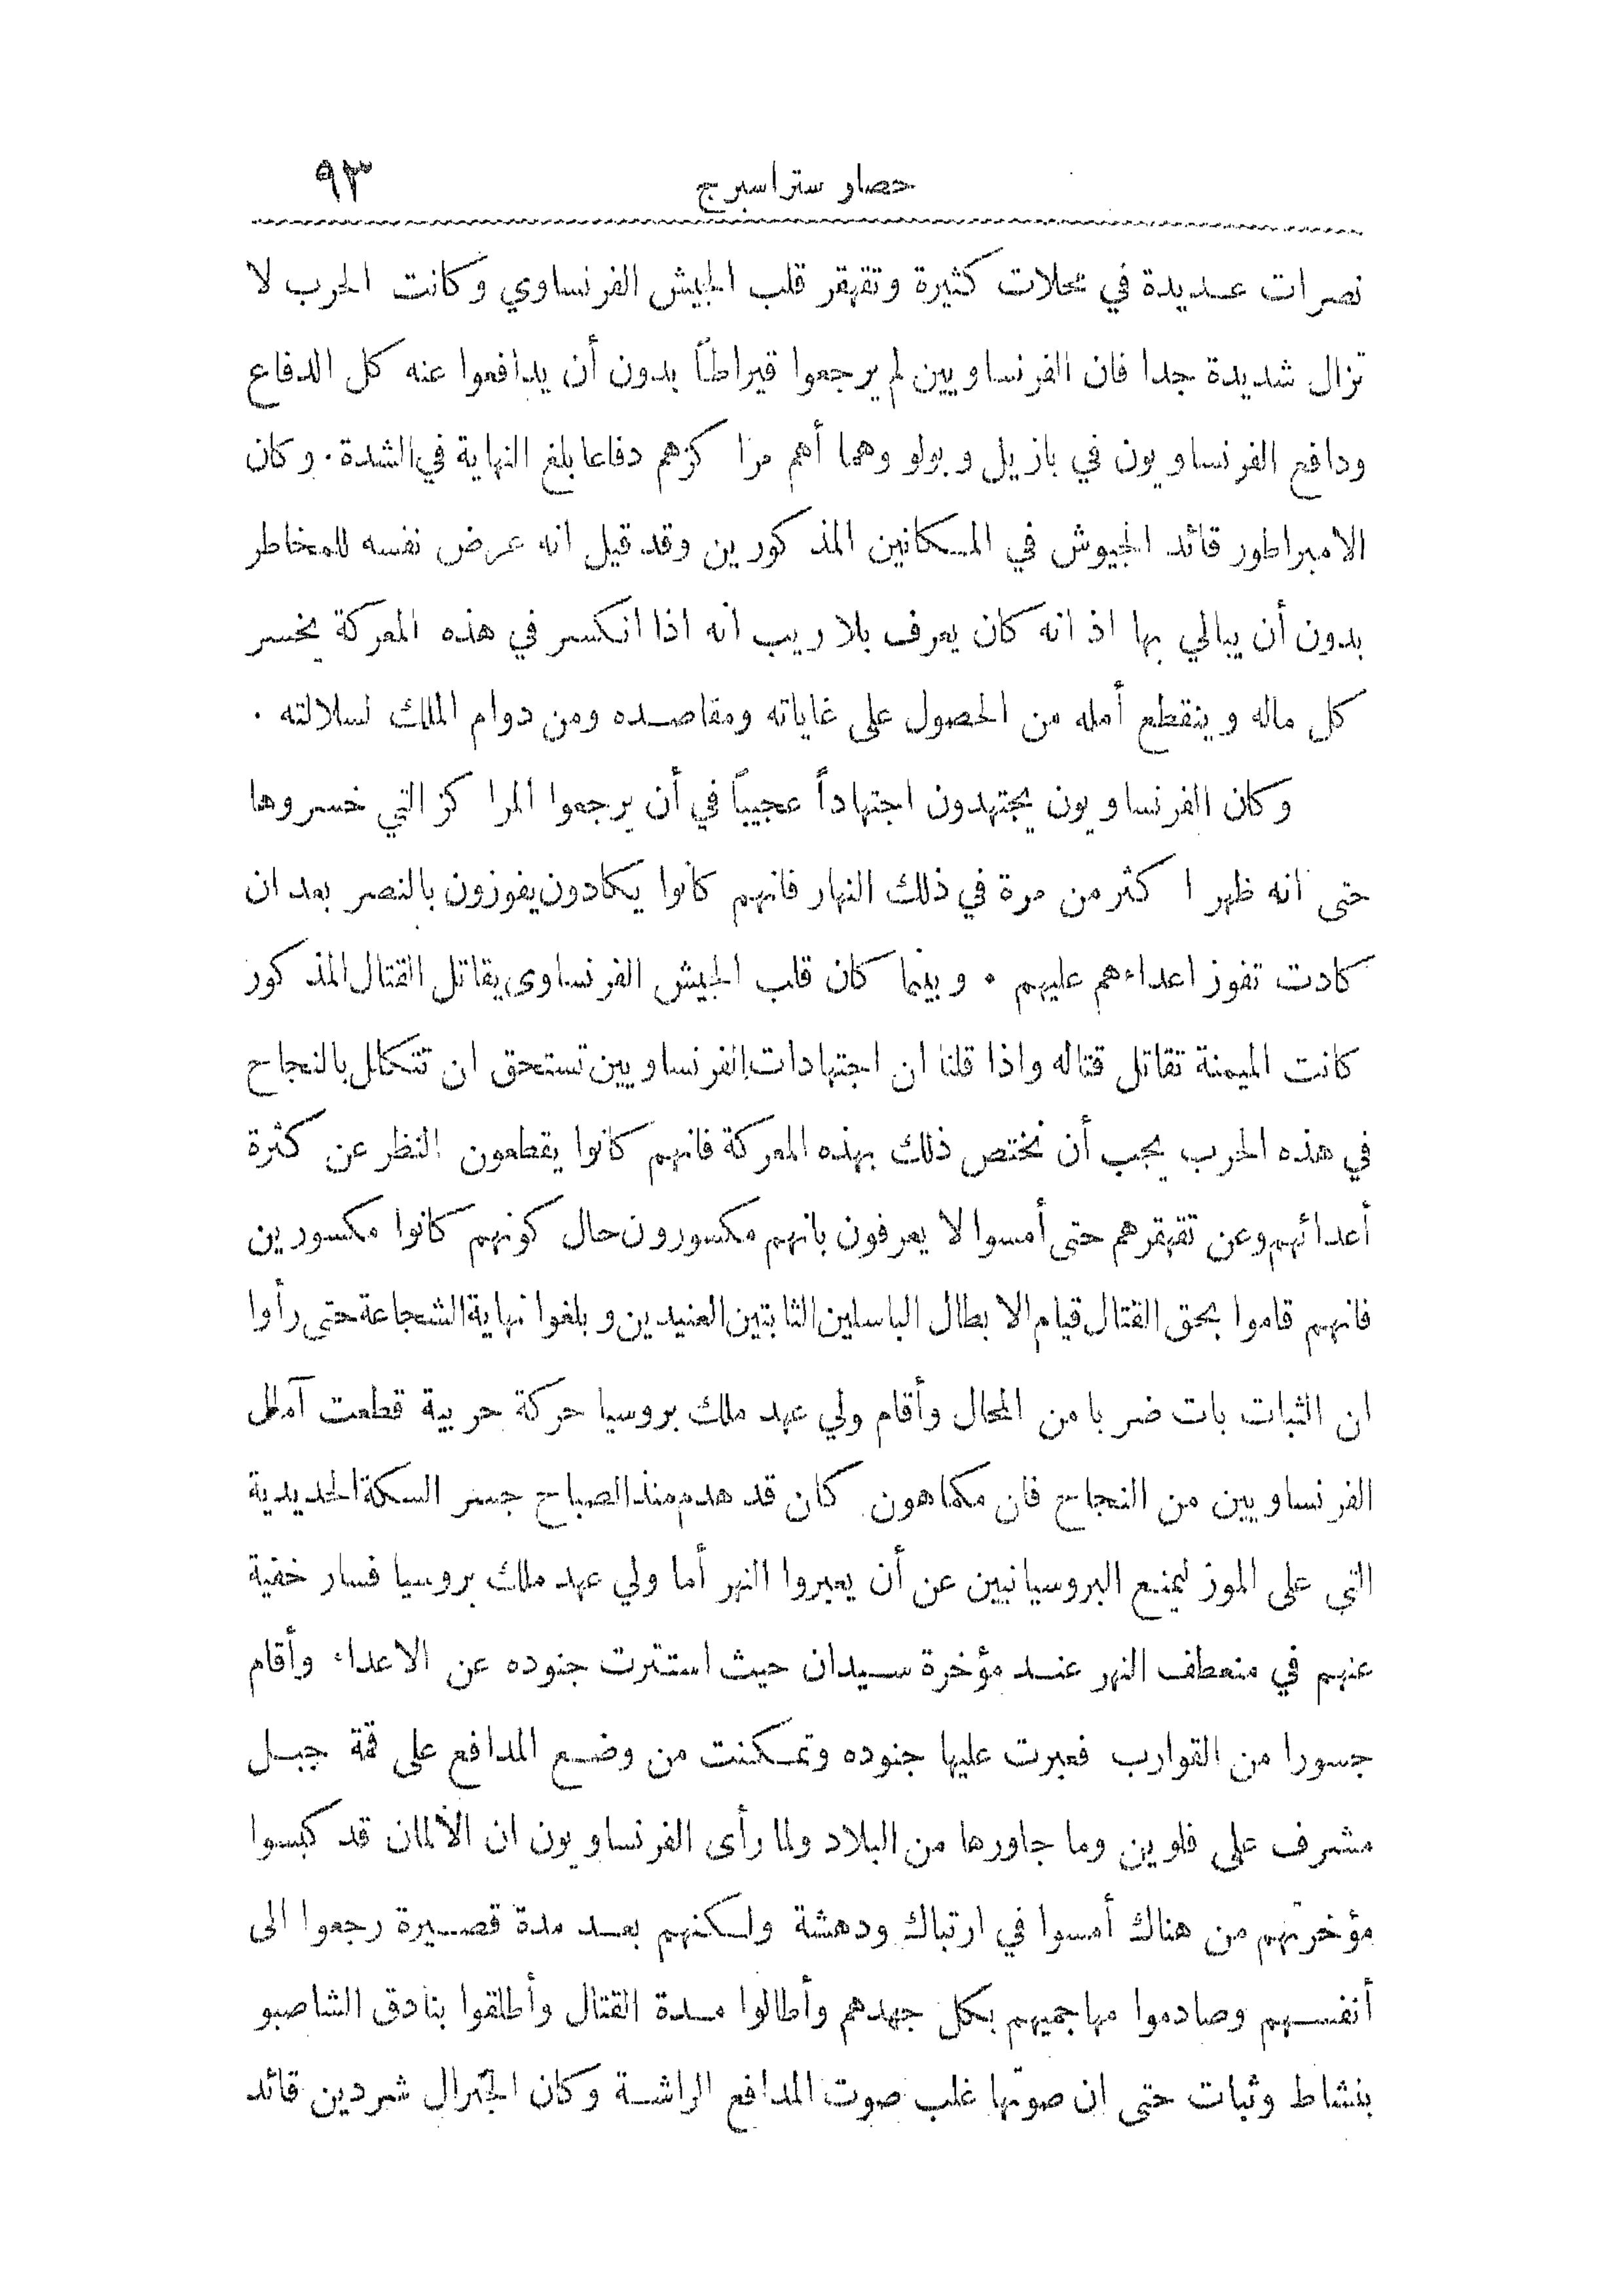 حصار ستراسبرج ٩٣
نصرات عديدة في محلات كثيرة وتقهقر قلب الجيش الفرنساوي وكانت الحرب لا
تزال شديدة جدا فان الفرنساويين لم يرجعوا قيراطاً بدون أن يدافعوا عنه كل الدفاع
ودافع الفرنساويون في بازيل وبولو وهما أهم مراكزهم دفاعا بلغ النهاية في الشدة. وكان
الامبراطور قائد الجيوش في المكانين المذكورين وقد قيل انه عرض نفسه للمخاطر
بدون أن يبالي بها اذ انه كان يعرف بلا ريب انه اذا انكسر في هذه المعركة يخسر
كل ماله وينقطع أمله من الحصول على غاياته ومقاصده ومن دوام الملك لسلالته .
وكان الفرنساويون يجتهدون اجتهاداً عجيباً في أن يرجعوا المراكز التي خسروها
حتى انه ظهر اكثر من مرة في ذلك النهار فانهم كانوا يكادون يفوزون بالنصر بعد ان
كادت تفوز اعداءهم عليهم . وبينما كان قلب الجيش الفرنساوى يقاتل القتال المذكور
كانت الميمنة تقاتل قتاله واذا قلنا ان اجتهادات الفرنساويين تستحق ان تتكلل بالنجاح
في هذه الحرب يجب أن نختص ذلك بهذه المعركة فانهم كانوا يقطعون النظر عن كثرة
أعدائهم وعن تقهقرهم حتى أمسوا لا يعرفون بانهم مكسورون حال كونهم كانوا مكسورين
فانهم قاموا بحق القتال قيام الابطال الباسلين الثابتين العنيدين وبلغوا نهاية الشجاعة حتى رأوا
ان الثبات بات ضربا من المحال وأقام ولي عهد ملك بروسيا حركة حربية قطعت آمال
الفرنساويين من النجاح فان مكماهون كان قد هدم منذ الصباح جسر السكة الحديدية
التي على الموز ليمنع البروسيانيين عن أن يعبروا النهر أما ولي عهد ملك بروسيا فسار خفية
عنهم في منعطف النهر عند مؤخرة سيدان حيث استترت جنوده عن الاعداء وأقام
جسورا من القوارب فعبرت عليها جنوده وتمكنت من وضع المدافع على قمة جبل
مشرف على فلوين وما جاورها من البلاد ولما رأى الفرنساويون ان الألمان قد كبسوا
مؤخرتهم من هناك أمسوا في ارتباك ودهشة ولكنهم بعد مدة قصيرة رجعوا الى
أنفسهم وصادموا مهاجميهم بكل جهدهم وأطالوا مدة القتال وأطلقوا بنادق الشاصبو
بنشاط وثبات حتى ان صوتها غلب صوت المدافع الراشة وكان الجنرال شردين قائد